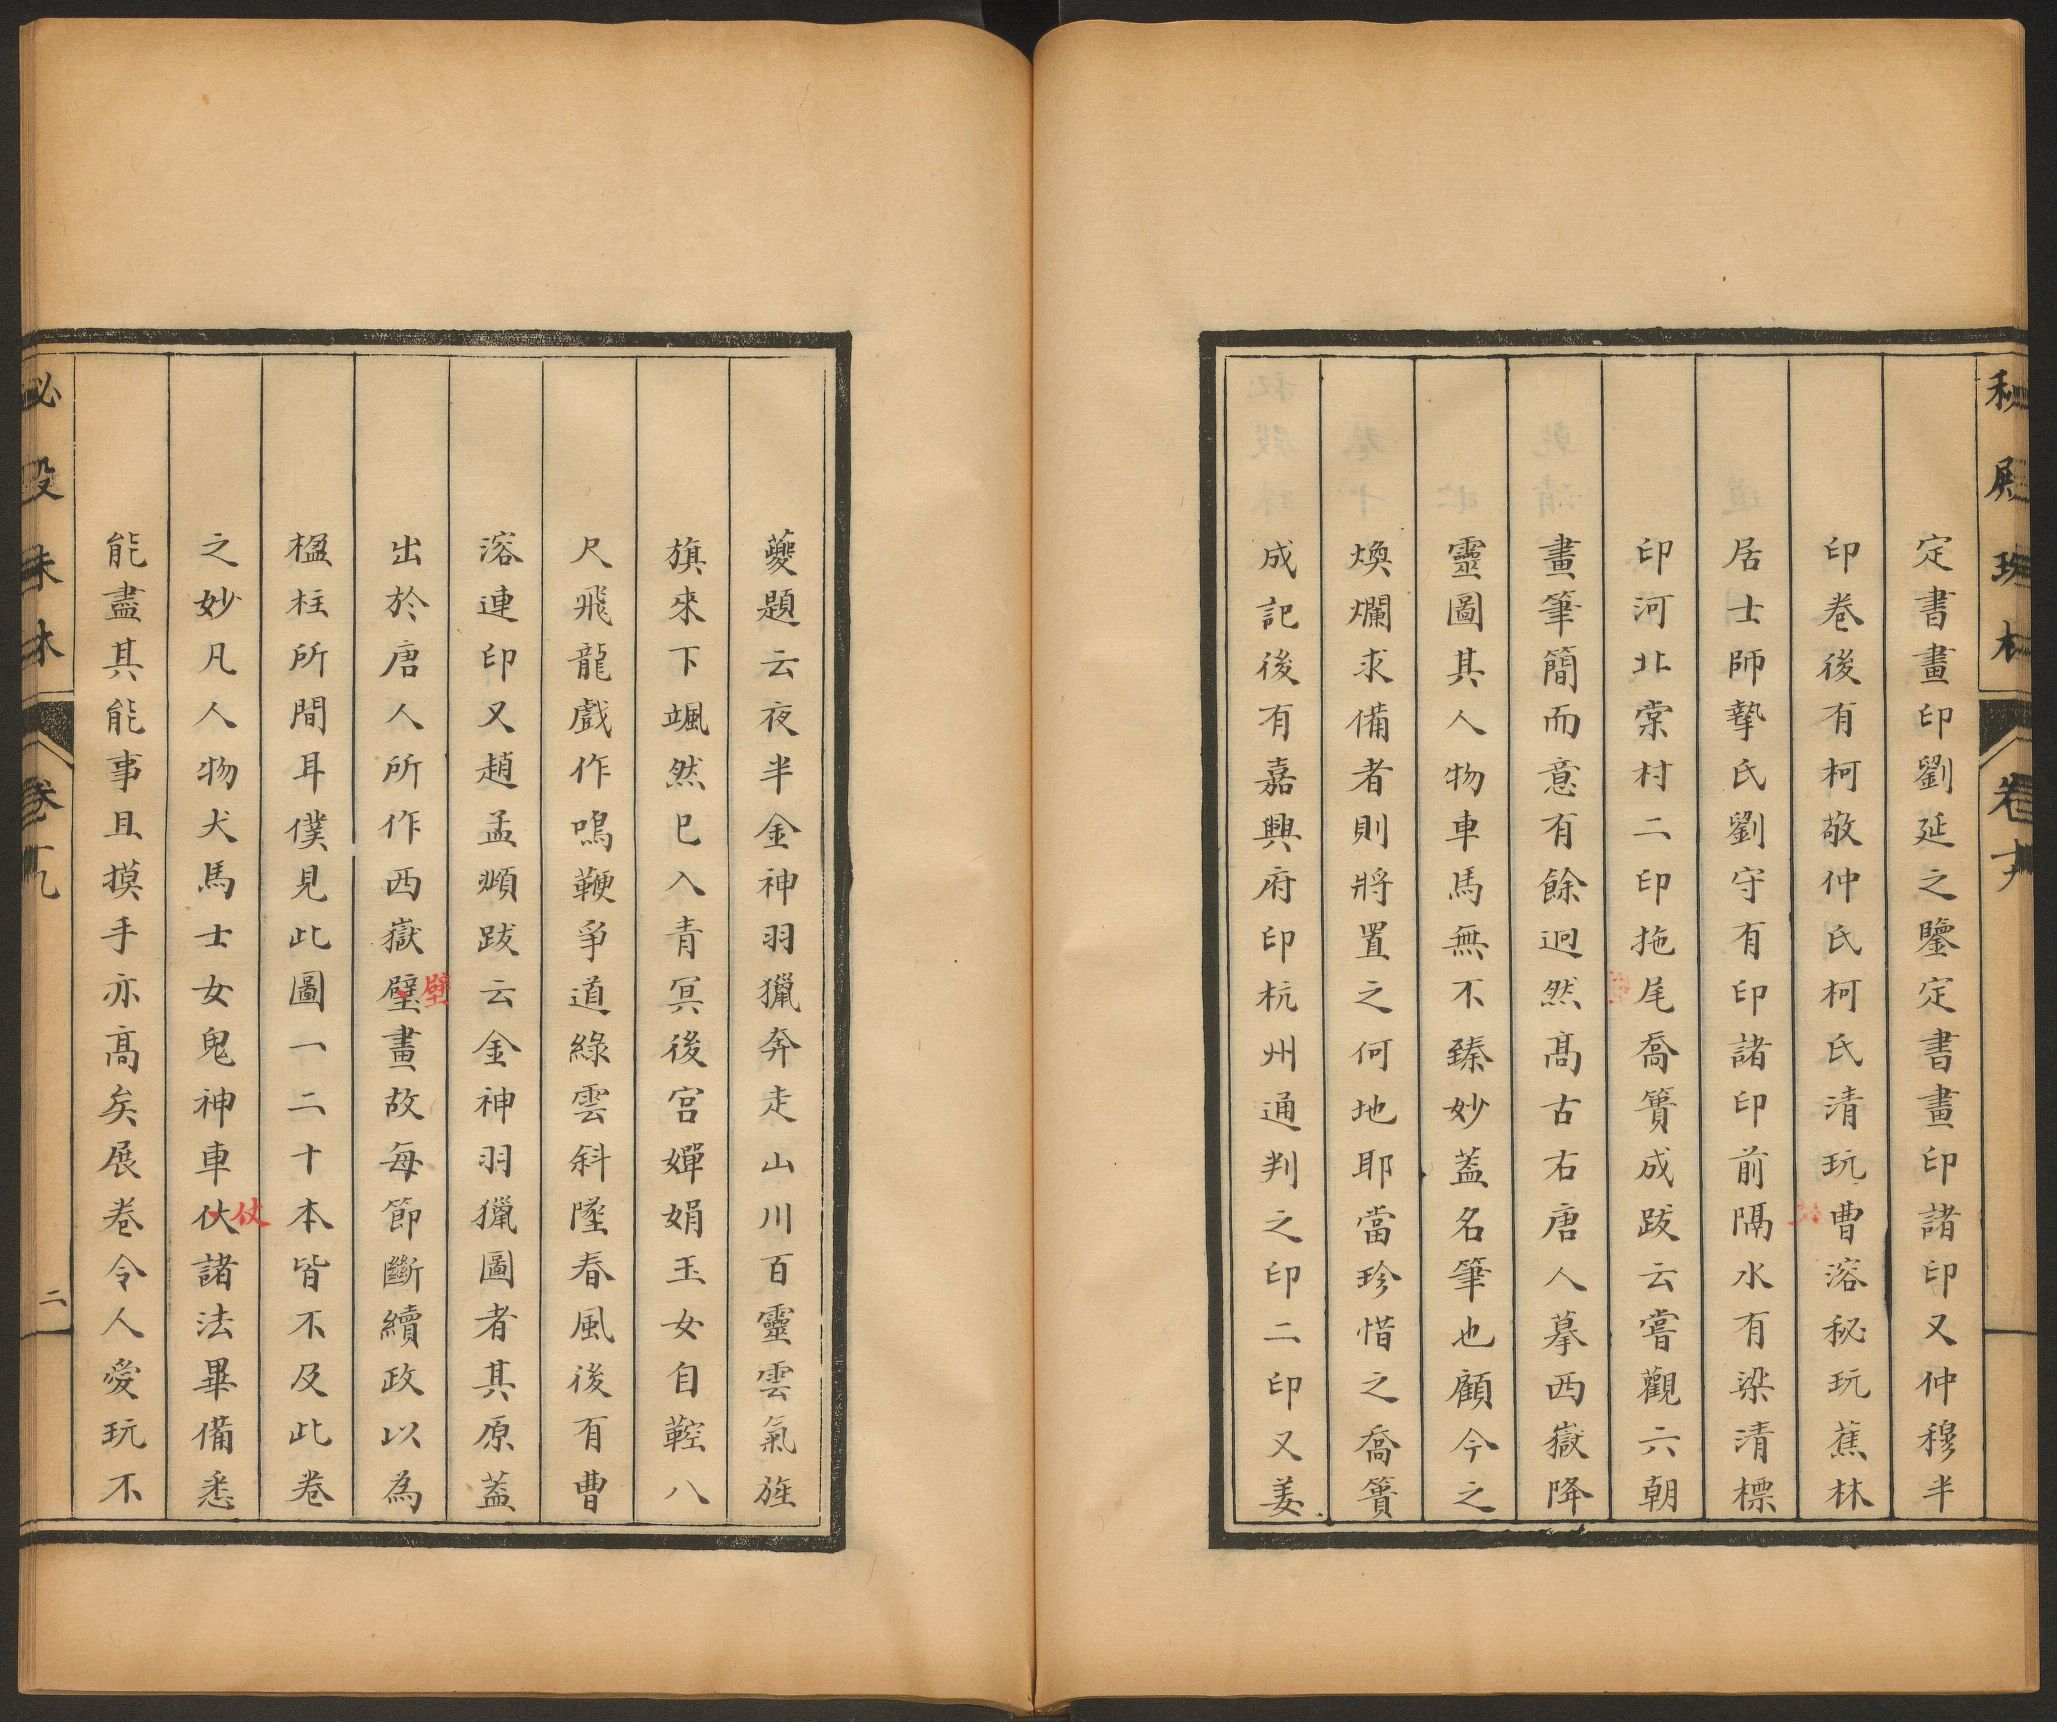 定書畫印劉延之鑒定書畫印諸印又仲穆半
印卷後有柯敬仲氏柯氏清玩曹溶秘玩蕉林
居士師摯氏劉守有印諸印前隔水有梁清標
印河北棠村二印拖尾喬簣成跋云嘗觀六朝
畫筆簡而意有餘迥然髙古右唐人摹西嶽降
靈圖其人物車馬無不臻妙葢名筆也顧今之
煥爛求備者則將置之何地耶當珍惜之喬簣
成記後有嘉興府印杭州通判之印二印又姜
夔題云夜半金神羽獵奔走山川百靈雲氣旌
旗來下颯然已入青冥後宫嬋娟玉女自鞚八
尺飛龍戲作鳴鞭爭道綠雲斜墜春風後有曹
溶連印又趙孟頫跋云金神羽獵圖者其原葢
壁
出於唐人所作西嶽壁畫故每節斷續政以為
楹柱所間耳僕見此圖一二十本皆不及此卷
仗
之妙凡人物犬馬士女鬼神車伏諸法畢備悉
能盡其能事且摸手亦高矣展卷令人愛玩不
卷九
二